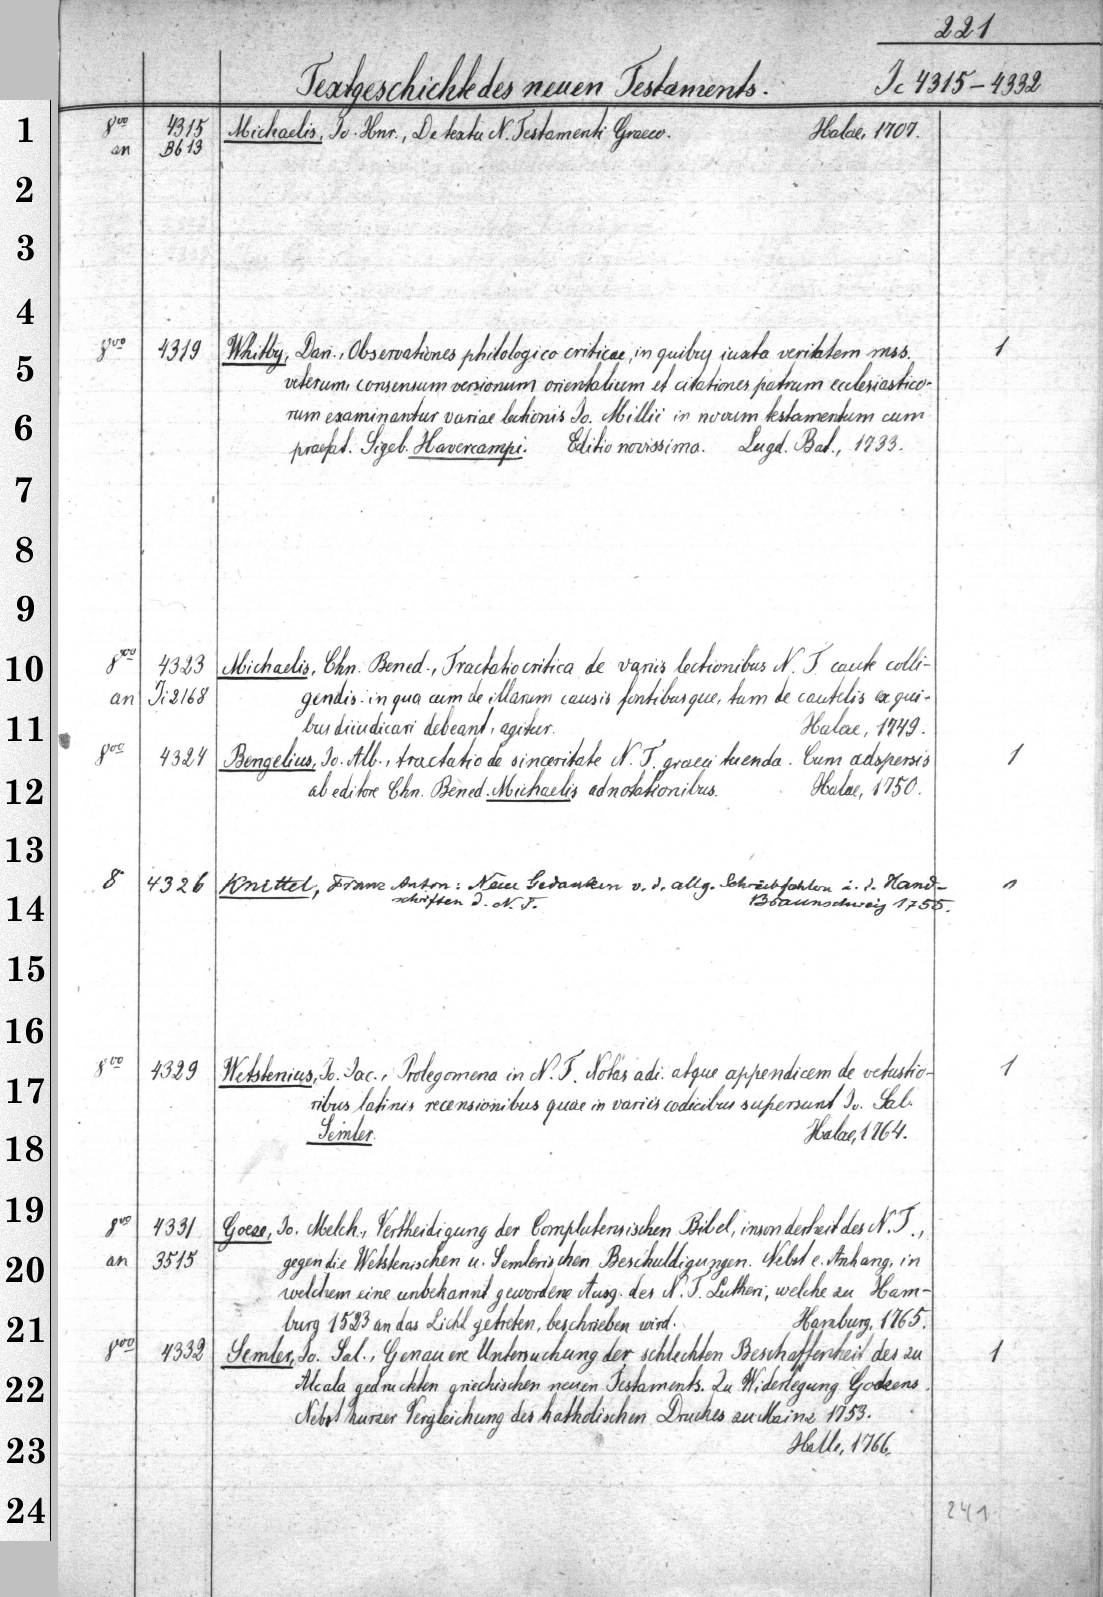 221
Textgeschichte des neuen Testaments. Ic 4315-4332
1 8vo 4315 Michaelis, Jo. Hnr., De textu N. Testamenti Graeco. Halae, 1707.
an B613
2
3
4
5 8vo 4319 Whitby, Dan., Observationes philologico criticae, in quibus iuxta veritatem mss. 1
veterum, consensum versionum orientalium et citationes patrum ecclesiastico-
6 rum examinantur variae lectionis Jo. Millii in novum testamentum cum
praefat. Sigeb. Havercampi. Editio novissima. Lugd. Bat., 1733.
7
8
9
10 8vo 4323 Michaelis, Chn. Bened., Tractatio critica de variis lectionibus N. T. caute colli-
an Ti 2168 gendis. in qua cum de illarum causis fontibusque, tum de cautelis ex qui-
11 bus diiudicari debeant, agitur. Halae, 1749.
8vo 4324 Bengelius, Jo. Alb., tractatio de sinceritate N. T. graeci tuenda. Cum adspersis 1
12 ab editore Chn. Bened. Michaelis adnotationibus. Halae, 1750.
13
8° 4326 Knittel, Franz Anton: Neue Gedanken v. d. allg. Schreibfehlern i. d. Hand-
14 schriften d. N. T. Braunschweig 1755.
15
16
8vo 4329 Wetstenius, Jo. Jac., Prolegomena in N. T. Notas adi. atque appendicem de vetustio- 1
17 ribus latinis recensionibus quae in variis codicibus supersunt Jo. Sal.
18 Semler. Halae, 1764.
19
8vo 4331 Goeze, Jo. Melch., Vertheidigung der Complutensischen Bibel, insonderheit des N. T.,
20 an 3515 gegen die Wetstenischen u. Semlerischen Beschuldigungen. Nebst e. Anhang, in
welchem eine unbekannt gewordene Ausg. des N. T. Lutheri, welche zu Ham-
21 burg 1523 an das Licht getreten, beschrieben wird. Hamburg, 1765.
8vo 4332 Semler, Jo. Sal., Genauere Untersuchung der schlechten Beschaffenheit des zu 1
22 Alcala gedruckten griechischen neuen Testaments. Zu Widerlegung Goezens.
Nebst kurzer Vergleichung des katholischen Druckes zu Mainz 1753.
23 Halle, 1766.
24 241